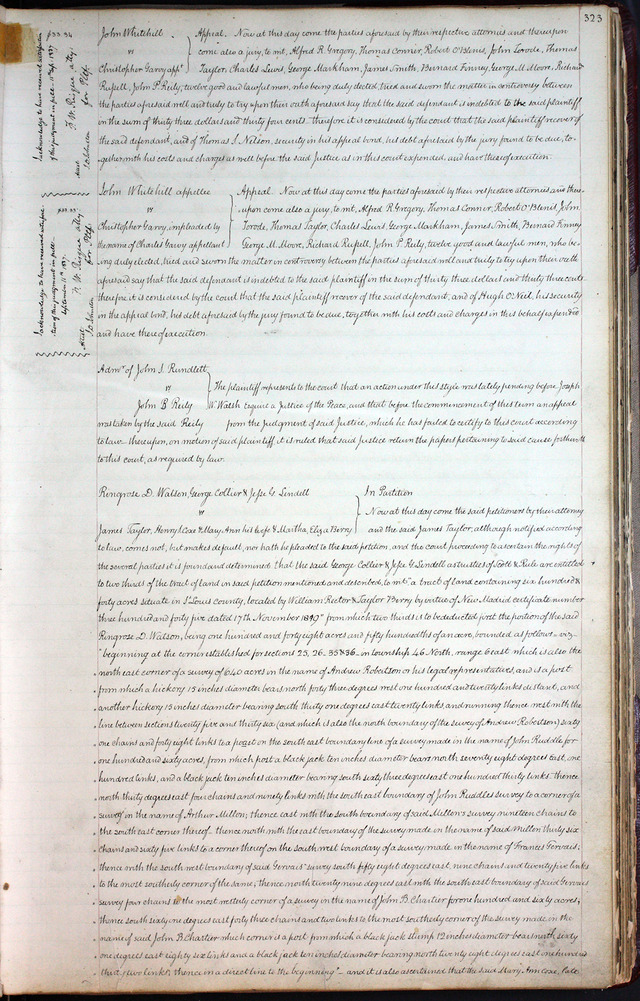 323
John Whitehill
vs
Christopher Garvy appt
Appeal. Now at this day come the parties aforesaid by their respective attornies and thereupon
come also a jury, to wit, Alfred R. Gregory, Thomas Conner, Robert O'Blenis, John Torode, Thomas
Taylor, Charles Lewis, George Markham, James Smith, Bernard Finney, George M. Moore, Richard
Russell, John P. Reily, twelve good and lawful men, who being duly elected, tried and sworn the matter in controversy between
the parties aforesaid well and truly to try upon their oath aforesaid say that the said defendant is indebted to the said plaintiff
in the sum of thirty three dollars and thirty four cents. Therefore it is considered by the court that the said plaintiff recover of
the said defendant, and of Thomas J. Nelson, security in his appeal bond, his debt aforesaid by the jury found to be due, to-
gether with his costs and charges as well before the said Justice as in this court expended, and have thereof execution.
$33.34
I acknowledge to have received satisfaction
of this judgment in full
F. W. Risque atty
for Plff.
attest
John Whitehill appellee
vs
Christopher Garvy, impleaded by
the name of Charles Garvy appellant
Appeal. Now at this day come the parties aforesaid by their respective attornies and there-
upon come also a jury, to wit, Alfred R. Gregory, Thomas Conner, Robert O'Blenis, John
Torode, Thomas Taylor, Charles Lewis, George Markham, James Smith, Bernard Finney
George M. Moore, Richard Russell, John P. Reily, twelve good and lawful men, who be-
ing duly elected, tried and sworn the matter in controversy between the parties aforesaid well and truly to try upon their oath
aforesaid say that the said defendant is indebted to the said plaintiff in the sum of thirty three dollars and thirty three cents
therefore it is considered by the court that the said plaintiff recover of the said defendant, and of Hugh O'Neil, his security
in the appeal bond, his debt aforesaid by the jury found to be due, together with his costs and charges in this behalf expended
and have thereof execution.
$33.33
I acknowledge to have received satisfac-
tion of this judgment in full
September 11th 1837.
F. W. Risque atty
for Plff.
attest
Admr. of John S. Rundlett
vs
John B Reily
The plaintiff represents to the court that an action under this style was lately pending before Joseph
W. Walsh Esquire a Justice of the Peace, and that before the commencement of this term an appeal
was taken by the said Reily from the judgment of said Justice, which he has failed to certify to this court according
to law. thereupon, on motion of said plaintiff, it is ruled that said Justice return the papers pertaining to said cause forthwith
to this court, as required by law.
Ringrose D. Watson, George Collier & Jesse G. Lindell
vs
James Taylor, Henry Coxe & Mary Ann his wife & Martha Eliza Berry
In Partition
Now at this day come the said petitioners by their attorney
and the said James Taylor, although notified according
to law, comes not, but makes default, nor hath he pleaded to the said petition, and the court proceeding to ascertain the rights of
the several parties it is found and determined that the said George Collier & Jesse G. Lindell as trustees of Scott & Rule are entitled
to two thirds of the tract of land in said petition mentioned and described, to wit, "a tract of land containing six hundred &
forty acres situate in St Louis county, located by William Rector & Taylor Berry by virtue of New Madrid certificate number
three hundred and forty five dated 17th November 1819" from which two thirds is to be deducted first the portion of the said
Ringrose D. Watson, being one hundred and forty eight acres and fifty hundredths of an acre, bounded as follows - viz -
"beginning at the corner established for sections 25, 26. 35 & 36 in township 46 North, range 6 east which is also the
north east corner of a survey of 640 acres in the name of Andrew Robertson or his legal representatives, and is a post
from which a hickory 15 inches diameter bears north forty three degrees west one hundred and twenty links distant, and
another hickory 15 inches diameter bearing south thirty one degrees east twenty links, and running thence west with the
line between sections twenty five and thirty six (and which is also the north boundary of the survey of Andrew Robertson) sixty
one chains and forty eight links to a post on the south east boundary line of a survey made in the name of John Ruddle for
one hundred and sixty acres, from which post a black jack ten inches diameter bears north seventy eight degrees east, one
hundred links, and a black jack ten inches diameter bearing south sixty three degrees east one hundred thirty links. thence
north thirty degrees east four chains and ninety links with the south east boundary of John Ruddles survey to a corner of a
survey in the name of Arthur Mullen; thence east with the south boundary of said Mullen's survey nineteen chains to
the south east corner thereof. thence north with the east boundary of the survey made in the name of said Mullen thirty six
chains and sixty five links to a corner thereof on the south west boundary of a survey made in the name of Francis Gervais;
thence with the south west boundary of said Gervais' survey south fifty eight degrees east, nine chains and twenty five links
to the most southerly corner of the same; thence north twenty nine degrees east with the south east boundary of said Gervais
survey four chains to the most westerly corner of a survey in the name of John B. Chartier for one hundred and sixty acres;
thence south sixty one degrees east forty three chains and two links to the most southerly corner of the survey made in the
name of said John B. Chartier which corner is a post from which a black jack stump 12 inches diameter bears north sixty
one degrees east eighty six links and a black jack ten inches diameter bearing north twenty eight degrees east one hundred
thirty two links, thence in a direct line to the beginning" - and it is also ascertained that the said Mary Ann Coxe, late